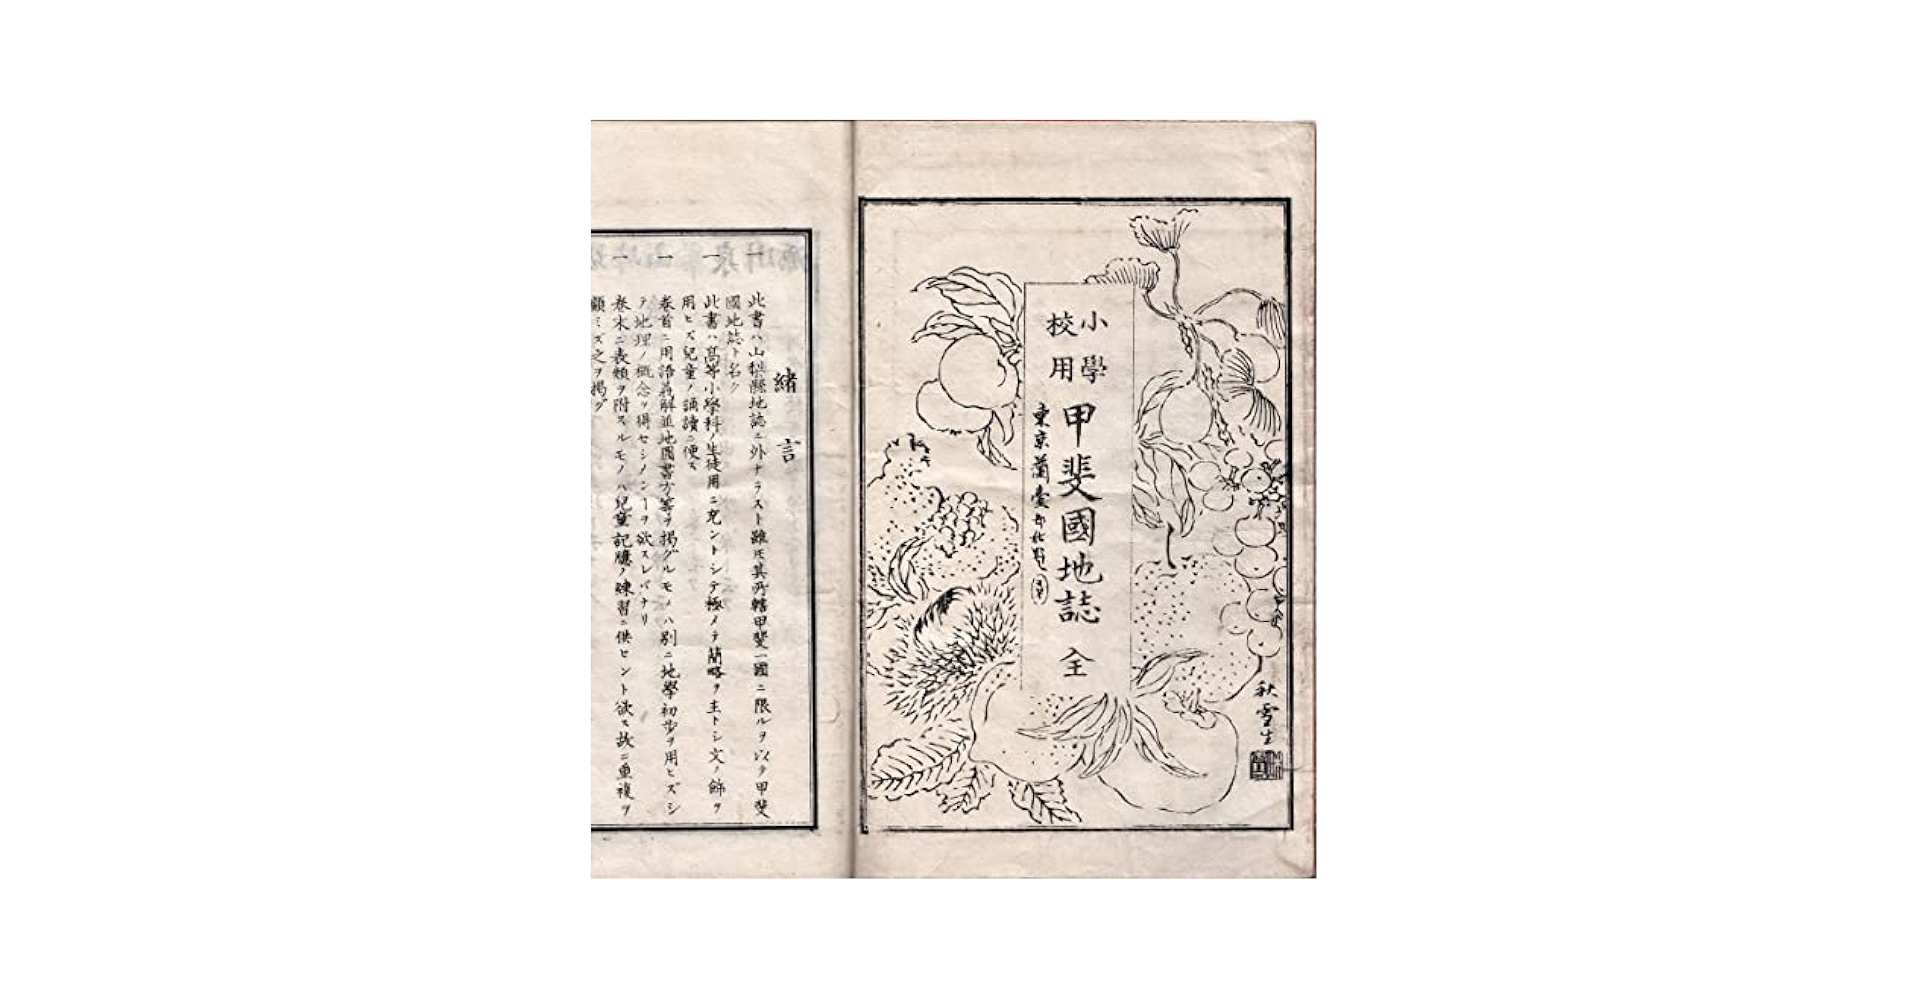 小學
校用
甲斐國地誌 全
東京 蘭臺
秋雪生
緒言
一 此書ハ山梨縣地誌ニ外ナラスト雖氏其所轄甲斐一國ニ限ルヲ以テ甲斐
國地誌ト名ク
一 此書ハ高等小學科ノ生徒用ニ充ントシテ極メテ簡略ヲ主トシ文ノ飾ヲ
用ヒズ兒童ノ誦讀ニ便ス
一 卷首ニ用語義解並地圖書方等ヲ掲グルモノハ別ニ地學初歩ヲ用ヒズシ
テ地理ノ概念ヲ得セシメンヿヲ欲スレバナリ
一 卷末ニ表類ヲ附スルモノハ兒童記臆ノ練習ニ供セント欲ス故ニ重複ヲ
顧ミズ之ヲ掲グ